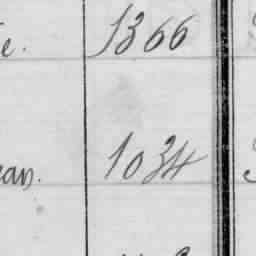 e. 1366
ean. 1034